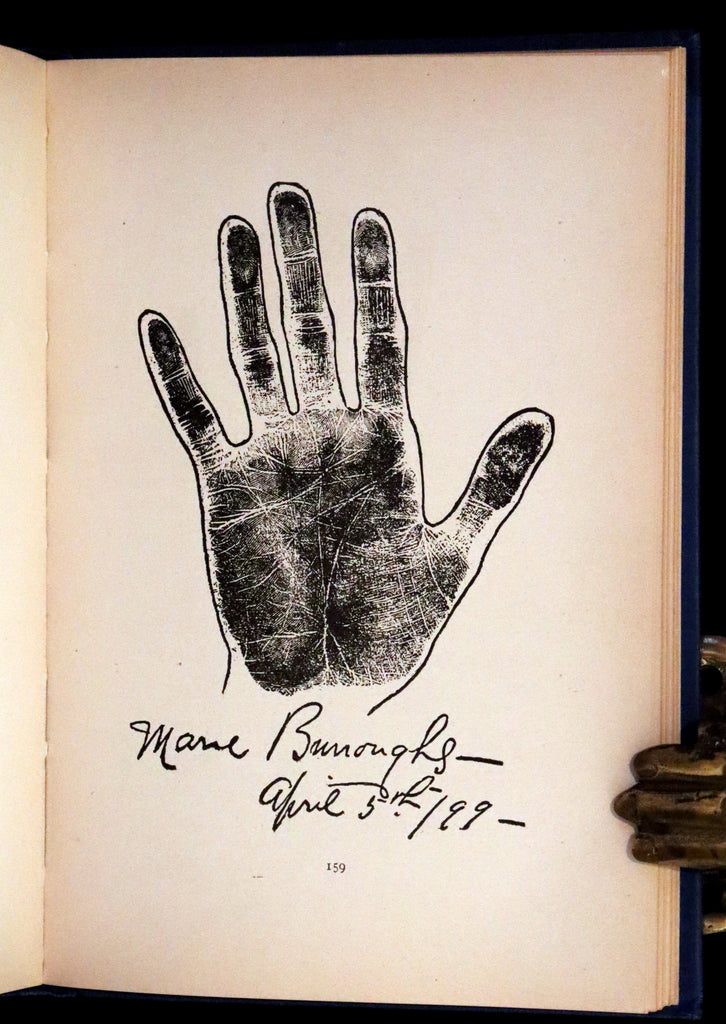 Marie Burroughs—
April 5th/99—
159